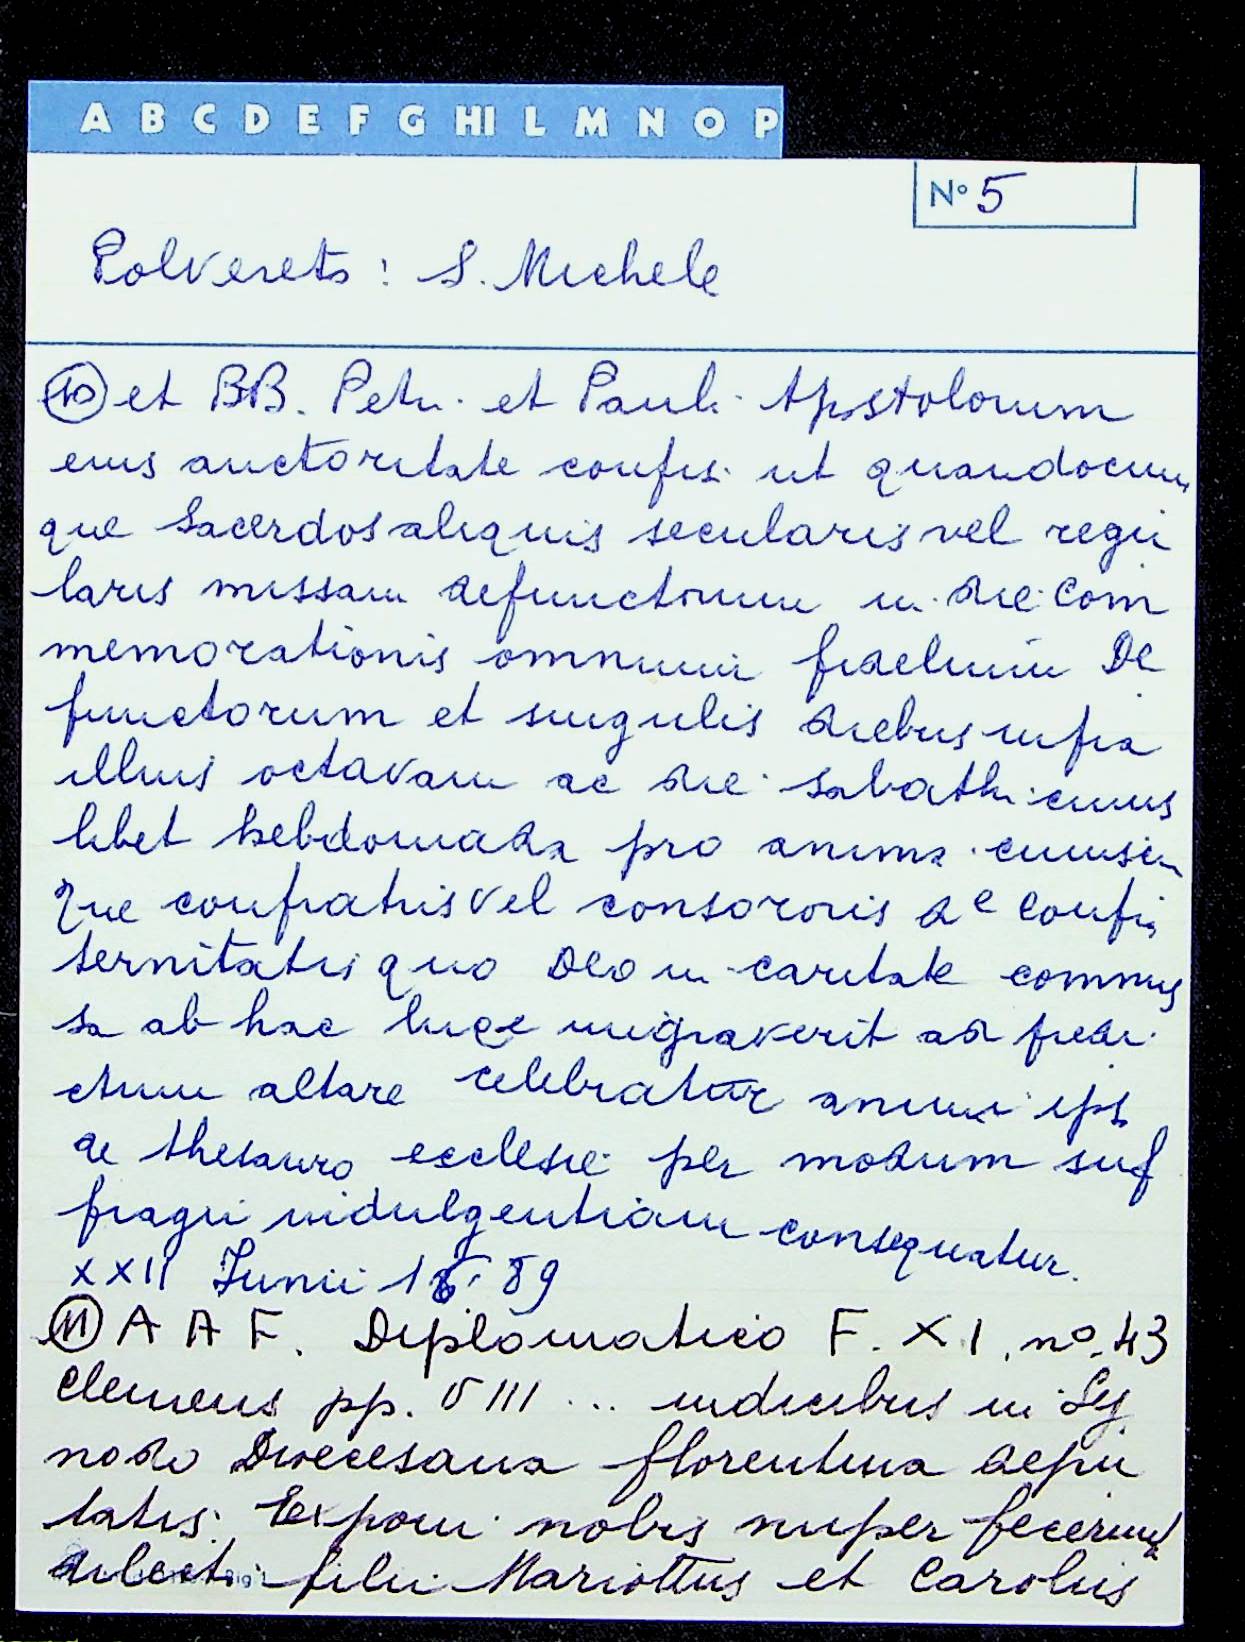 A B C D E F G HI L M N O P
N° 5
Polvereto: S. Michele
10 et BB. Petri et Pauli Apostolorum
eius auctoritate confisi ut quandocum
que Sacerdos aliquis secularis vel regu
laris missam defunctorum in die Com
memorationis omnium fidelium De
functorum et singulis diebus infra
illius octavam ac die sabathi cuius
libet hebdomada pro anima cuiuscu
que confratris vel consororis de confra
ternitatis quo Deo in caritate commis
sa ab hac luce migraverit ad predi
ctum altare celebratur anima ipsi
de thesauro ecclesie per modum suf
fragii indulgentiam consequatur.
XXII Junii 1589
11 A A F. Diplomatico F. XI. n°. 43
Clemens pp. VIII ... iudicibus in Sy
nodo Diocesana florentina depu
tatis. Exponi nobis nuper fecerunt
dilecti filii Mariottus et Carolus